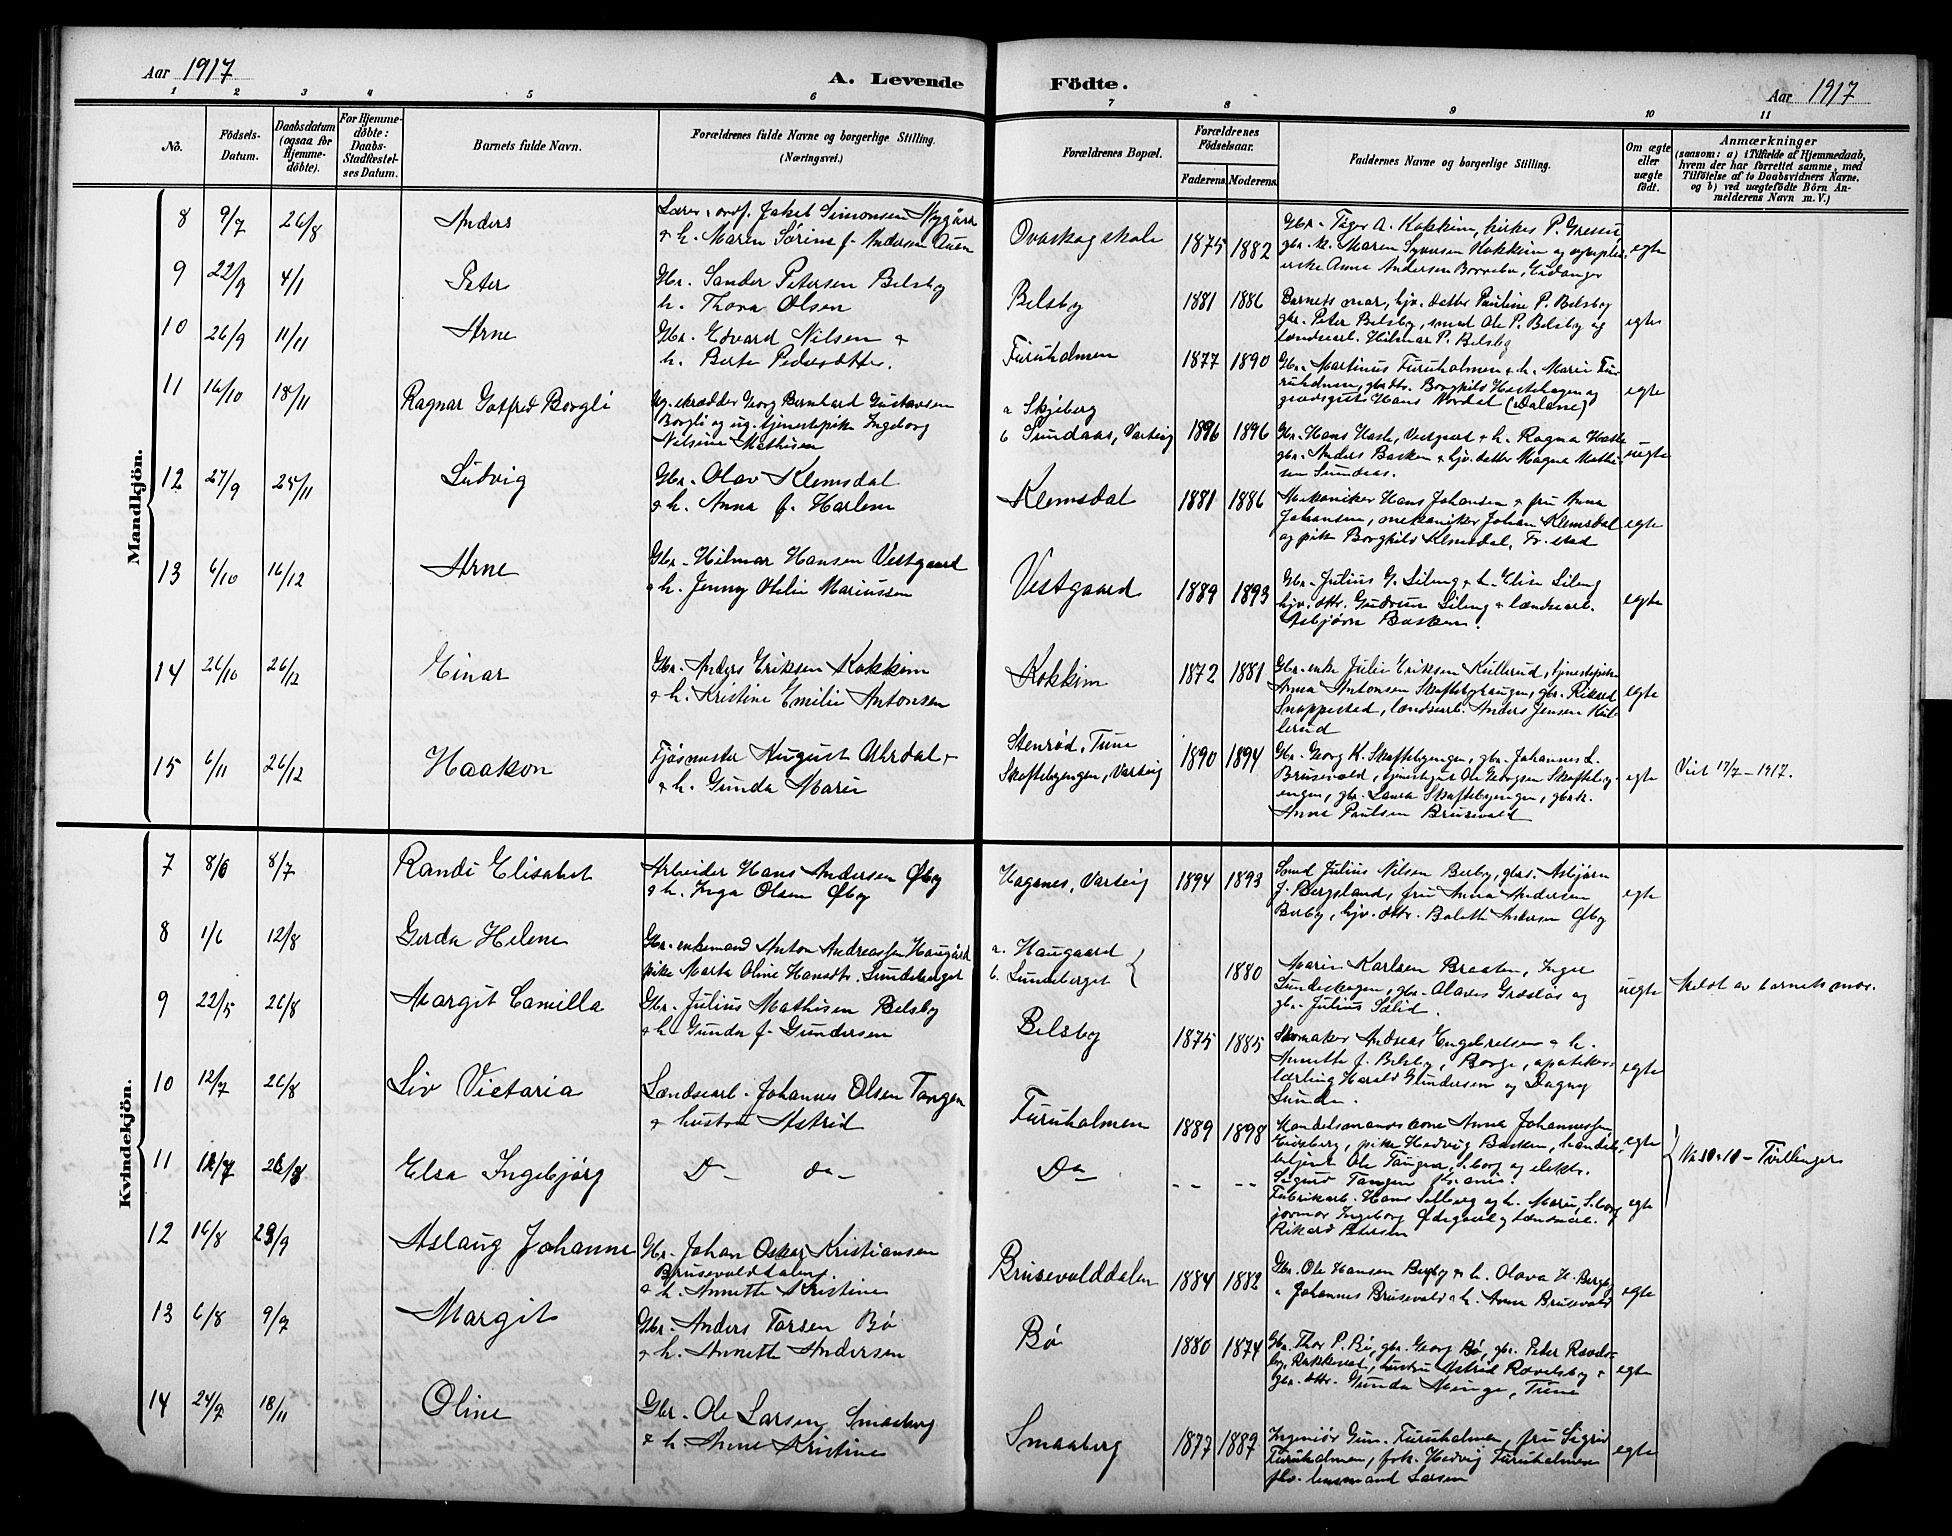 Aar 1917
A. Levende Födte.
Aar 1917
1 2 3 4 5 6 7 8 9 10 11
No.
Födsels-Datum.
Daabsdatum (ogsaa for Hjemme-döbte).
For Hjemme-döbte: Daabs-Stadfæstel-ses Datum.
Barnets fulde Navn.
Forældrenes fulde Navne og borgerlige Stilling. (Næringsvei.)
Forældrenes Bopæl.
Forældrenes Födselsaar.
Faderens. Moderens.
Faddernes Navne og borgerlige Stilling.
Om ægte eller uægte födt.
Anmærkninger
(saasom: a) i Tilfælde af Hjemmedaab,
hvem der har forrettet samme, med
Tilföielse af to Daabsvidners Navne,
og b) ved uægtefödte Börn An-
melderens Navn m. V.)
Mandkjön.
8 9/7 26/8 Anders
Lærer, ordf. Jakob Simonsen Nygård
+ h. Maren Sørine f. Andersen
Ovaskog skole 1875 1882
Gbr. A. Kokkim, P.
gbr. k. Maren Syversen Kokkim og
Anne Andersen Eidanger
egte
9 22/9 4/1 Peter
Gbr. Sander Petersen Belsby
h. Thora Olsen
Belsby 1881 1886
Barnets mor, hjv. datter Pauline P. Belsby
gbr. Peter Belsby, smed Ole P. Belsby og
landsarb. Hilmar P. Belsby
egte
10 26/9 11/11 Arne
Gbr. Edvard Nilsen +
h. Berte Pedersdatter.
Furuholmen 1877 1890
Gbr. Martinus Furuholmen + h. Marie Fu-
ruholmen, gbrdtr. Borghild Hastehagen og
Hans Nordal
egte
11 16/10 18/11 Ragnar Gotfred Borgli
Ug. skrædder Georg Bernhard Gustavsen
Borgli og ug. tjenestepike Ingeborg
Nilsine Mathisen
a Skjeberg
b Sundaas, Varteig 1896 1896
Gbr. Hans Hasle, Vestgaard + h. Ragna Hasle
gbr. Anders Basken + hjv. datter Magna Mathi-
sen Sundaas.
uegte
12 27/9 25/11 Ludvig
Gbr. Olav Klemsdal
+ h. Anna f. Harlem
Klemsdal 1881 1886
Mekaniker Hans Johansen + fru Anna
Johansen, mekaniker Johan Klemsdal
og pike Borghild Klemsdal, Fr. stad
egte
13 6/10 16/12 Arne
Gbr. Hilmar Hansen Vestgaard
+ h. Jenny Otelie Mariussen
Vestgaard 1889 1893
Gbr. Julius G. Liseng + h. Elise Liseng
hjv. dtr. Gudrun Liseng + landsarb.
Asbjørn Basken.
egte
14 26/10 26/12 Einar
Gbr. Anders Eriksen Kokkim
+ h. Kristine Emilie Antonsen
Kokkim 1872 1881
Gbr. enke Julie Eriksen Kullerud, tjenestepike
Anna Antonsen Skaftebyhaugen, gbr. Rikard
Snoppestad, landsarb. Anders Jensen Kul-
lerud
egte
15 6/11 26/12 Haakon
Fjøsmester August Aterdal +
+ h. Gunda Marie
Stenrød, Tune
Skaftebyengen, Varteig 1890 1894
Gbr. Georg K. Skaftebyengen, gbr. Johannes L.
Brusevold, tjenestegut Ole Georgsen Skafteby-
engen, gbr. Laura Skaftebyengen, gbrk.
Anna Paulsen Brusevold
egte
Viet 17/7 - 1917.
Kvindekjön.
7 8/6 8/7 Randi Elisabet
Arbeider Hans Andersen Øby
+ h. Inga Olsen Øby
Hagenes, Varteig 1894 1893
Smed Julius Nilsen Berby, gbrs. Asbjørn
J. Bergsland, fru Anna Andersen
Berby, hjv. dtr. Bolette Andersen Øby
egte
8 1/6 12/8 Gerda Helene
Gbr. enkemand Anton Andreassen Haugård
pike Marta Oline Hansdtr. Sundeberget
a. Haugaard
b. Sundeberget 1880
Marie Karlsen Braaten, Inger
Sundeskogen, gbr. Olaves Gräslös og
gbr. Julius Solid.
uegte
Meldt av barnets mor.
9 22/5 26/8 Margit Camilla
Gbr. Julius Mathisen Belsby
+ h. Gunda f. Gundersen
Belsby 1875 1885
Skomaker Andreas Engebretsen + h.
Annette f. Belsby, Borge, apoteker-
lærling Harald Gundersen og Dagny
Lunde.
egte
10 12/7 26/8 Liv Victoria
Landsarb. Johannes Olsen Tangen
+ hustru Astrid
Furuholmen 1889 1898
Handelsmands kone Anna Johannessen
pike Hedvig Basken, handels-
betjent Ole Tangen, S.borg og elektr.
Sigurd Tangen
egte
11 12/7 26/8 Elsa Ingebjørg
D- do-
Do- -- --
Fabrikarb. Hans Solberg og h. Marie, S.borg
jormor Ingeborg Ødegaard, landsarb.
Rikard Petersen
egte
No 10 & 11 - Tvillinger
12 16/8 23/9 Aslaug Johanne
Gbr. Johan Oskar Kristiansen
Brusevolddalen.
+ h. Annette Kristine
Brusevolddalen 1884 1882
Gbr. Ole Hansen Bergby + h. Olava H. Bergby
" Johannes Brusevold + h. Anna Brusevold
egte
13 6/8 9/9 Margit
Gbr. Anders Torsen Bø
+ h. Annette Andersen
Bø 1880 1874
Gbr. Thor P. Bø, gbr. Georg Bø, gbr. Peter
Rakkestad, hustru Astrid Ravelsby +
gbr. dtr. Gunda Minge, Tune
egte
14 24/9 18/11 Oline
Gbr. Ole Larsen Smaaberg
+ h. Anne Kristine
Smaaberg 1877 1887
Ingeniør Gun. Furuholmen, fru Sigrid
Furuholmen, frk. Hedvig Furuholmen
fhv. lensmand Larsen
egte